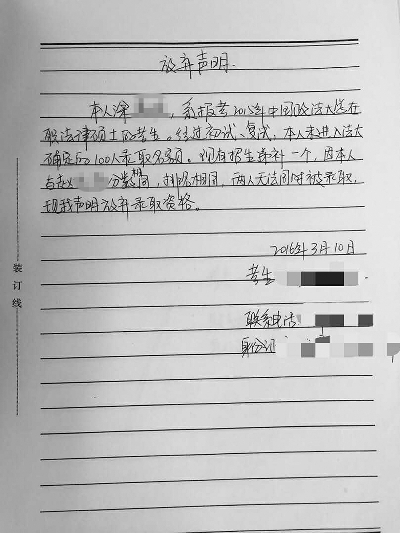 放弃声明
本人涂，系报考2015年中国政法大学在
职法律硕士的考生。经过初试、复试，本人未进入法大
确定的100人录取名单。现有招生增补一个，因本人
与赵分数相同，排名相同，两人无法同时被录取，
现我声明放弃录取资格。
2016年3月10日
考生
联系电话：
身份证：
装订线